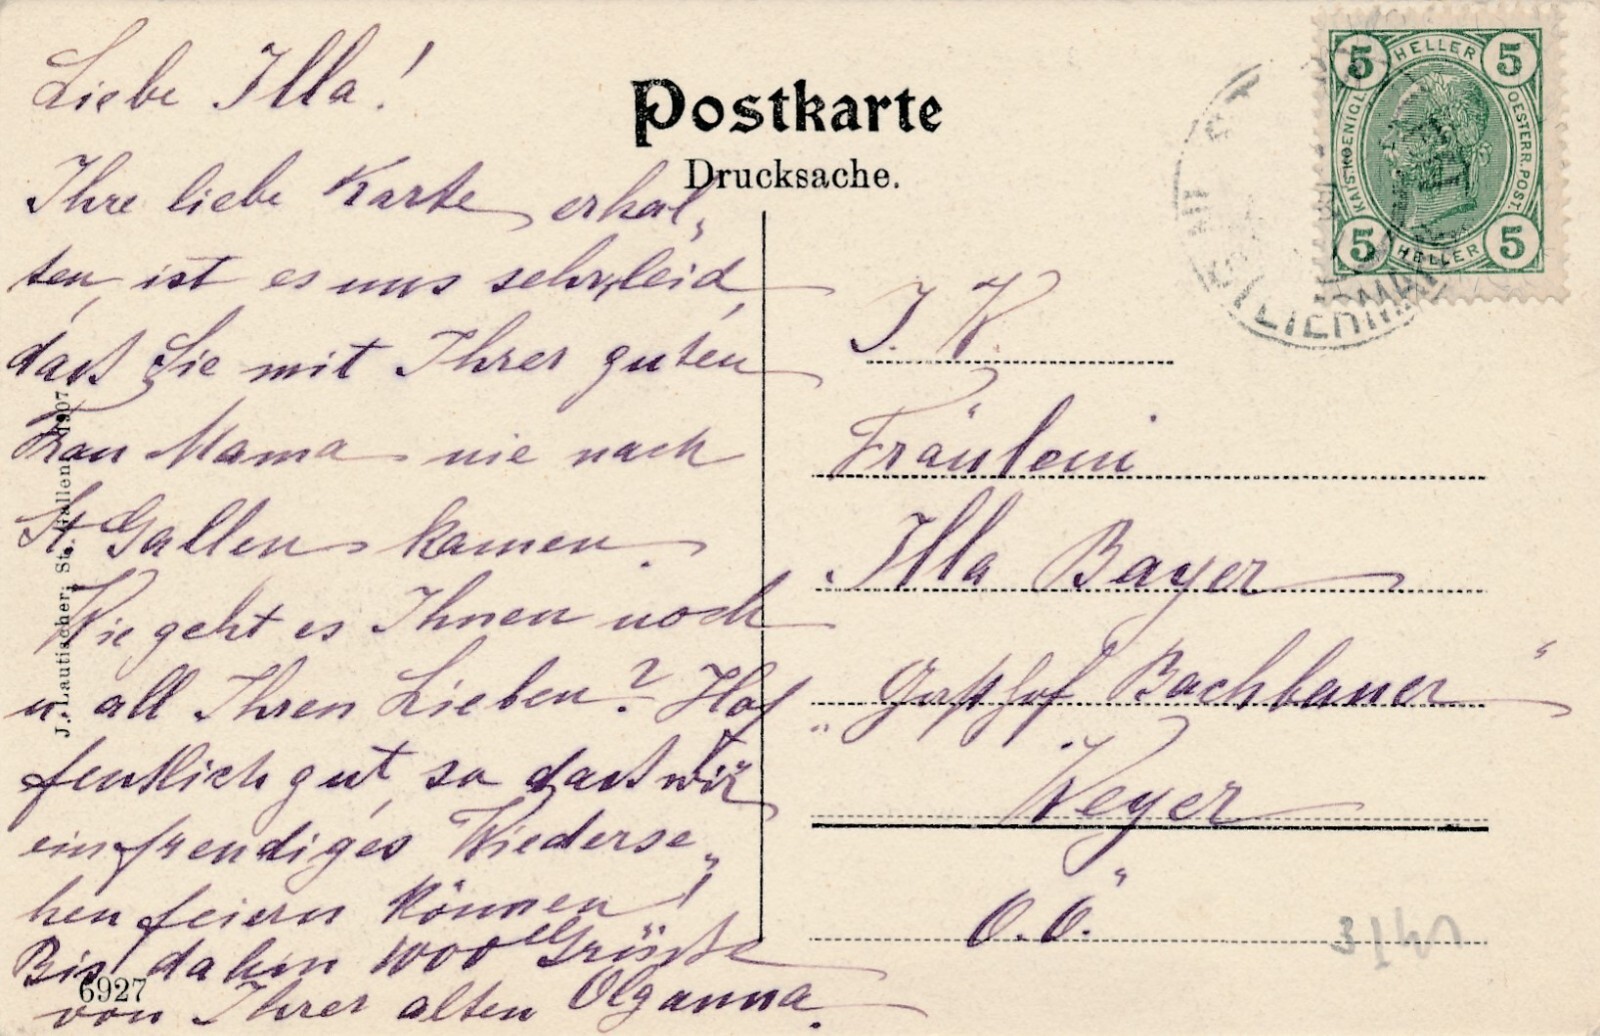 Liebe Illa!
Ihre liebe Karte erhal„
ten, ist es uns sehr leid,
dass Sie mit Ihrer guten
Frau Mama nie nach
St. Gallen kamen.
Wie geht es Ihnen noch
u. all Ihren Lieben? Hof
fentlich gut, so dass wir
ein freudiges Wiederse„
hen feiern können!
Bis dahin 1000 Grüsse
von Ihrer alten Olganna.
J. Lautischer, St. Gallen 1907
6927
Postkarte
Drucksache.
5 HELLER 5
KAIS. KOENIGL.
OESTERR. POST.
5 HELLER 5
STEIERMARK
I. W.
Fräulein
Illa Bayer
„Gasthof Bachbauer"
Weyer
O.Ö.